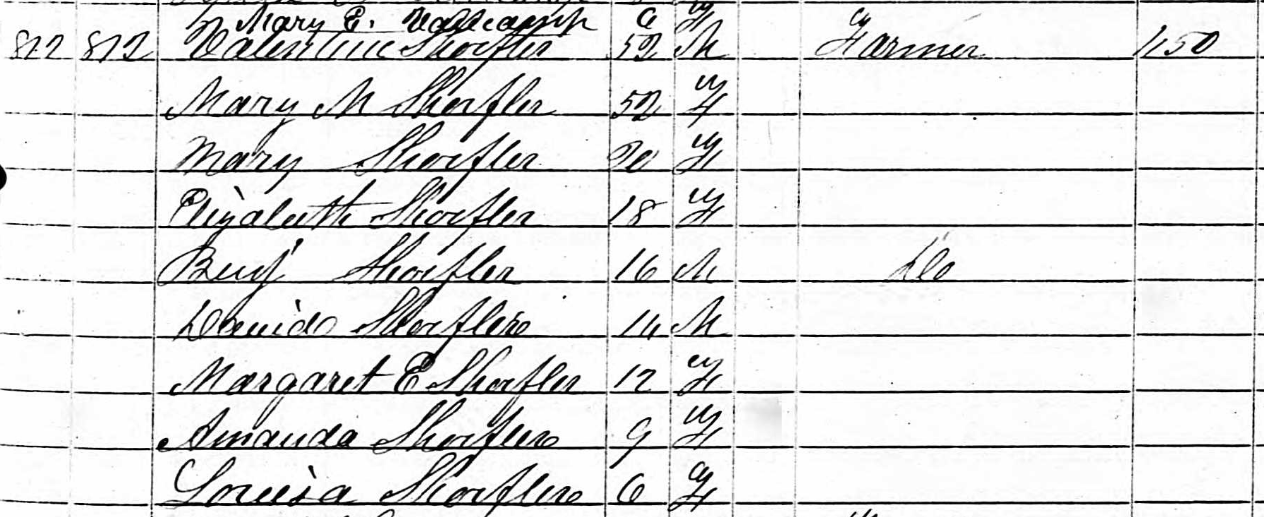 Mary E. 6 F
872 872 Valentine Shoefler 52 M Farmer 1150
Mary M Shoefler 52 F
Mary Shoefler 20 F
Elizabeth Shoefler 18 F
Benj Shoefler 16 M Do
David Shoefler 14 M
Margaret E Shoefler 12 F
Amanda Shoefler 9 F
Louisa Shoefler 6 F